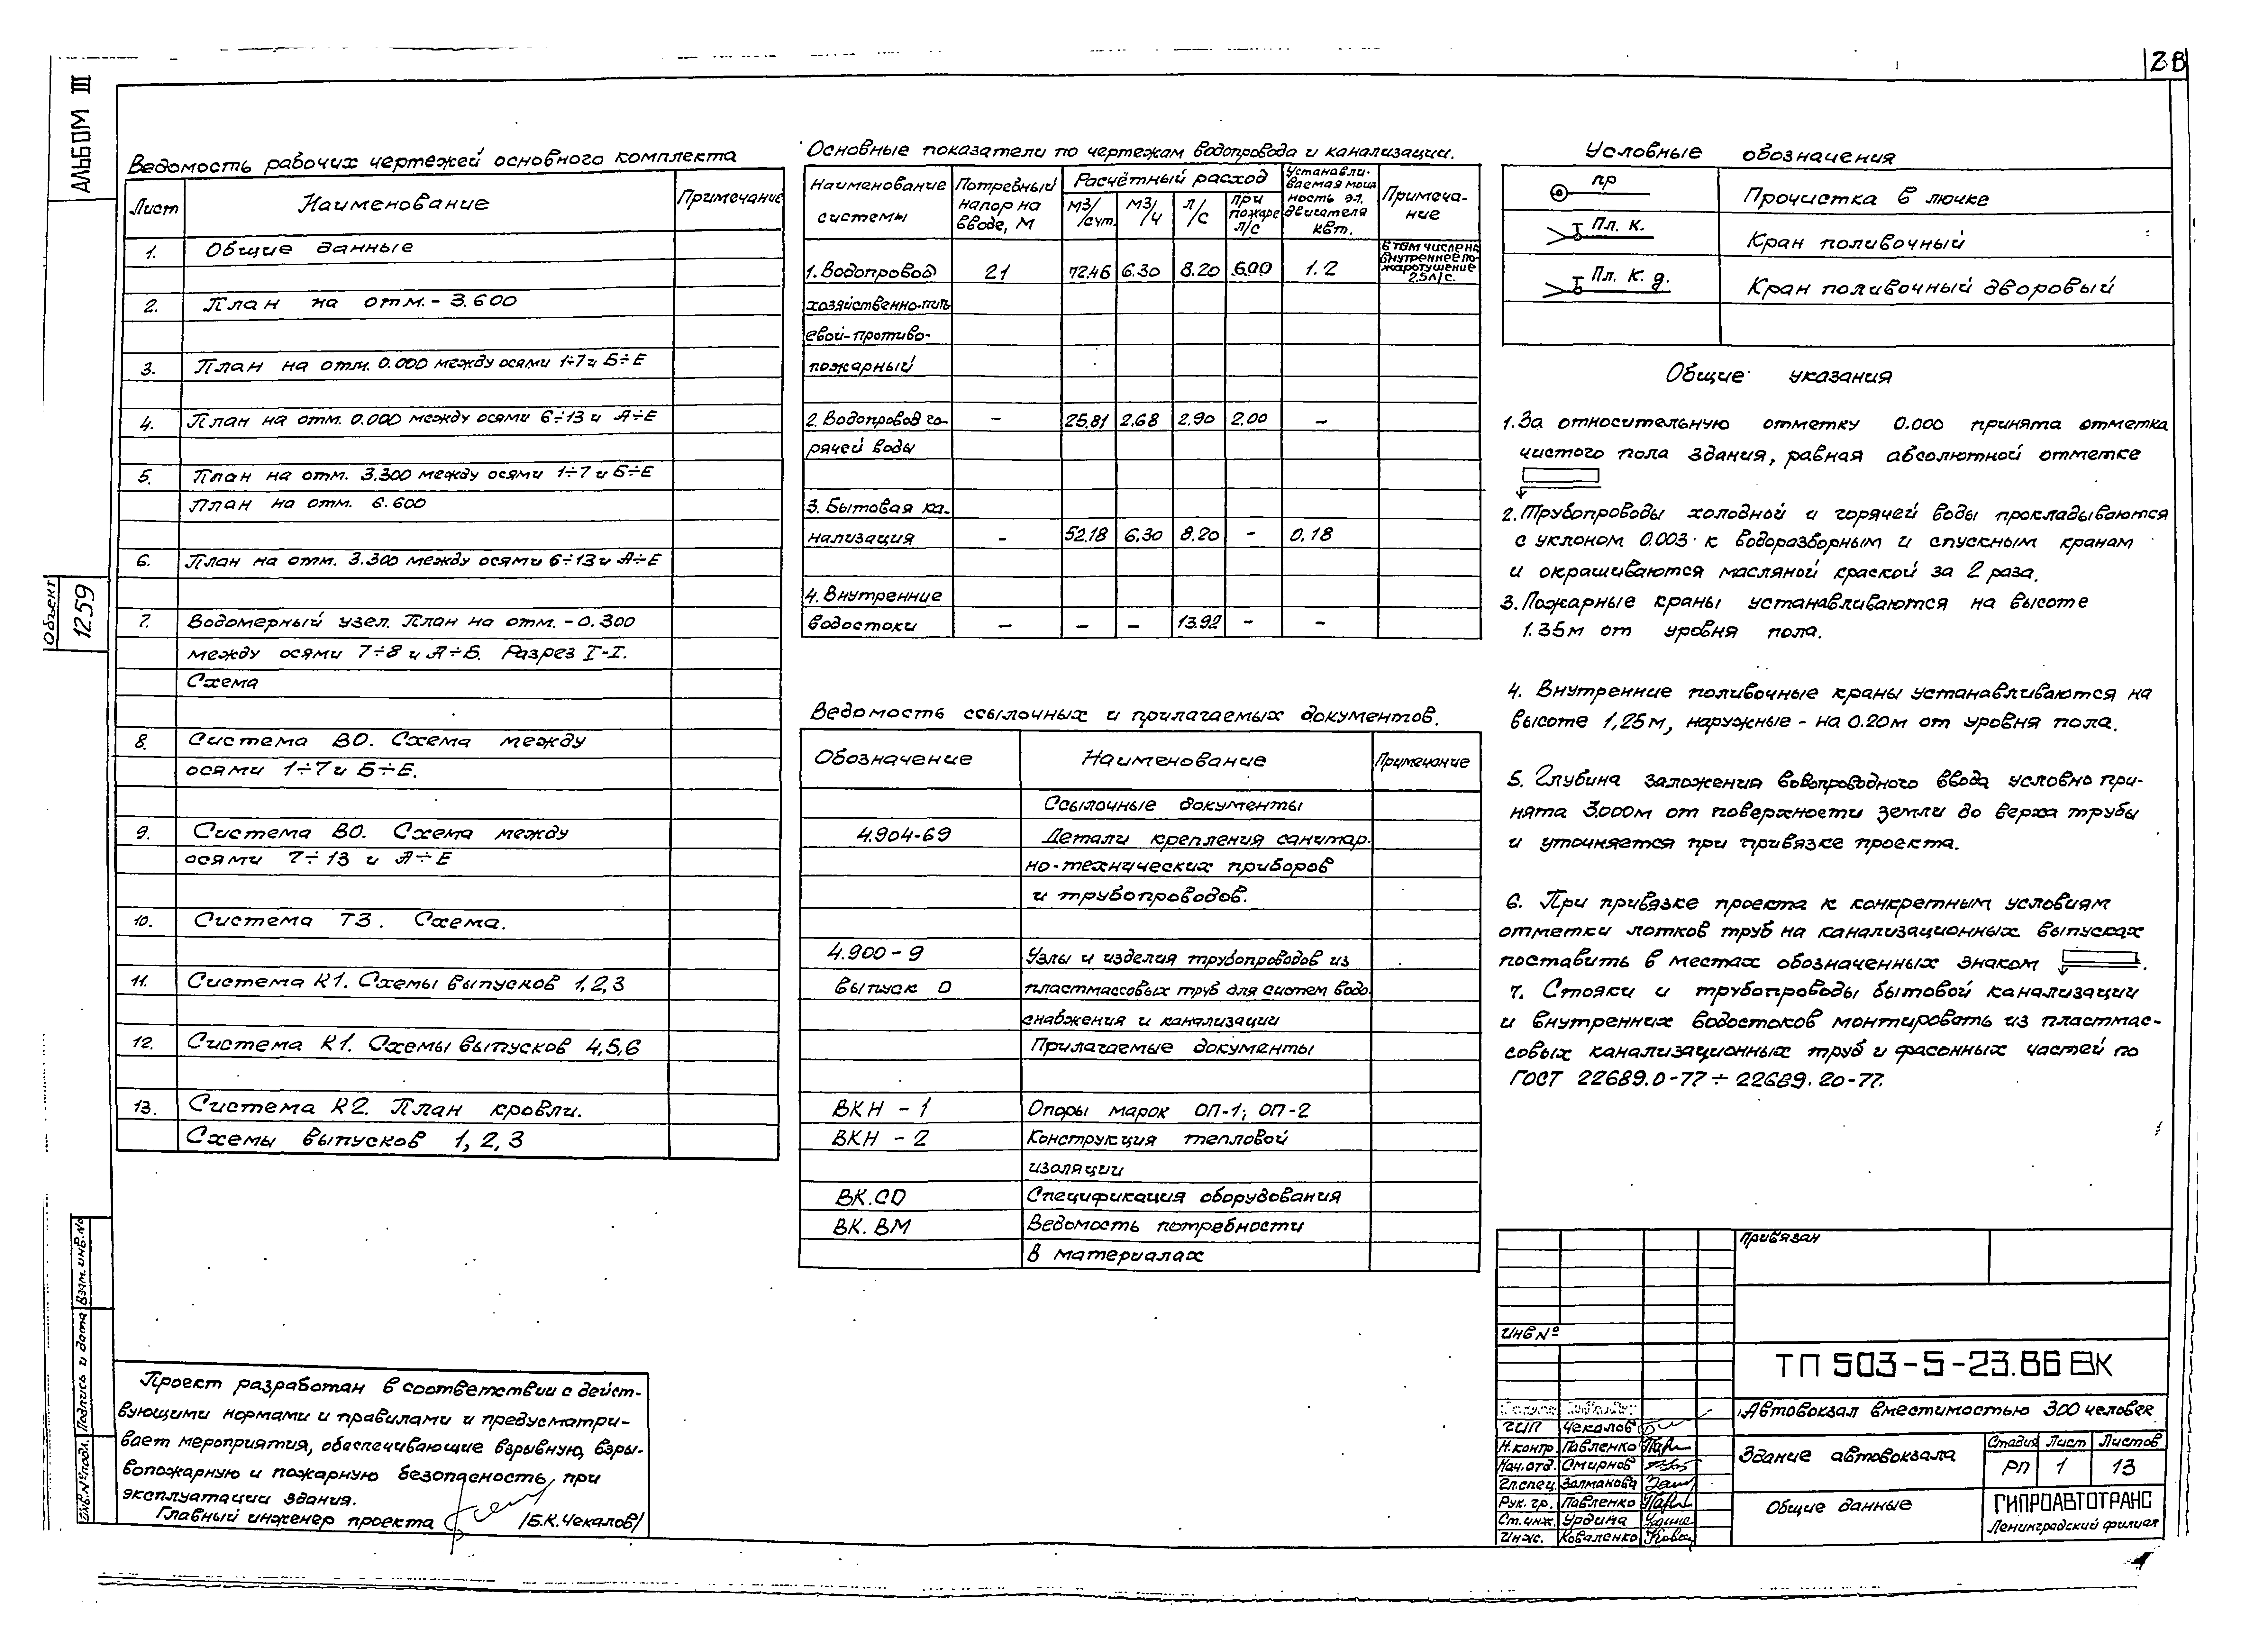 2В
АЛЬБОМ III
Объект
1259
Ведомость рабочих чертежей основного комплекта
Лист Наименование Примечание
1. Общие данные
2. План на отм. - 3.600
3. План на отм. 0.000 между осями 1÷7 и Б÷Е
4. План на отм. 0.000 между осями 6÷13 и А÷Е
5. План на отм. 3.300 между осями 1÷7 и Б÷Е
План на отм. 6.600
6. План на отм. 3.300 между осями 6÷13 и А÷Е
7. Водомерный узел. План на отм. - 0.300
между осями 7÷8 и А÷Б. Разрез I-I.
Схема
8. Система ВО. Схема между
осями 1÷7 и Б÷Е.
9. Система ВО. Схема между
осями 7÷13 и А÷Е
10. Система Т3. Схема.
11. Система К1. Схемы выпусков 1,2,3
12. Система К1. Схемы выпусков 4,5,6
13. Система К2. План кровли.
Схемы выпусков 1, 2, 3
Взам. инв.№
Подпись и дата
Инв.№подл.
Проект разработан в соответствии с дейст-
вующими нормами и правилами и предусматри-
вает мероприятия, обеспечивающие взрывную, взры-
вопожарную и пожарную безопасность при
эксплуатации здания.
Главный инженер проекта /Б.К.Чекалов/
Основные показатели по чертежам водопровода и канализации.
Наименование системы
Потребный напор на вводе, м
Расчётный расход
м3/сут. м3/ч л/с при пожаре л/с
Устанавли-
ваемая мощ
ность эл.
двигателя
квт.
Примеча-
ние
1. Водопровод 21 72.46 6.30 8.20 6.00 1.2
в том числе на
внутреннее по-
жаротушение
2.5 л/с.
хозяйственно-пить
евой-противо-
пожарный
2. Водопровод го- – 25.81 2.68 2.90 2.00 –
рячей воды
3. Бытовая ка-
нализация – 52.18 6.30 8.20 – 0.18
4. Внутренние
водостоки – – – 13.92 – –
Ведомость ссылочных и прилагаемых документов.
Обозначение Наименование Примечание
Ссылочные документы
4.904-69 Детали крепления санитар-
но-технических приборов
и трубопроводов.
4.900-9 Узлы и изделия трубопроводов из
выпуск 0 пластмассовых труб для систем водо-
снабжения и канализации
Прилагаемые документы
ВКН - 1 Опоры марок ОП-1; ОП-2
ВКН - 2 Конструкция тепловой
изоляции
ВК.СО Спецификация оборудования
ВК.ВМ Ведомость потребности
в материалах
Условные обозначения
пр Прочистка в лючке
Пл. к. Кран поливочный
Пл. к. д. Кран поливочный дворовый
Общие указания
1. За относительную отметку 0.000 принята отметка
чистого пола здания, равная абсолютной отметке
2. Трубопроводы холодной и горячей воды прокладываются
с уклоном 0.003 к водоразборным и спускным кранам
и окрашиваются масляной краской за 2 раза.
3. Пожарные краны устанавливаются на высоте
1.35м от уровня пола.
4. Внутренние поливочные краны устанавливаются на
высоте 1,25м, наружные - на 0.20м от уровня пола.
5. Глубина заложения водопроводного ввода условно при-
нята 3.000м от поверхности земли до верха трубы
и уточняется при привязке проекта.
6. При привязке проекта к конкретным условиям
отметки лотков труб на канализационных выпусках
поставить в местах обозначенных знаком .
7. Стояки и трубопроводы бытовой канализации
и внутренних водостоков монтировать из пластмас-
совых канализационных труб и фасонных частей по
ГОСТ 22689.0-77 ÷ 22689.20-77.
Привязан
Инв №
ТП 503-5-23.86 ВК
Автовокзал вместимостью 300 человек
ГИП Чекалов
Н.контр. Павленко
Нач.отд. Смирнов
Гл.спец. Залманова
Рук. гр. Павленко
Ст.инж. Урдина
Инж. Коваленко
Здание автовокзала
Стадия Лист Листов
РП 1 13
Общие данные
ГИПРОАВТОТРАНС
Ленинградский филиал